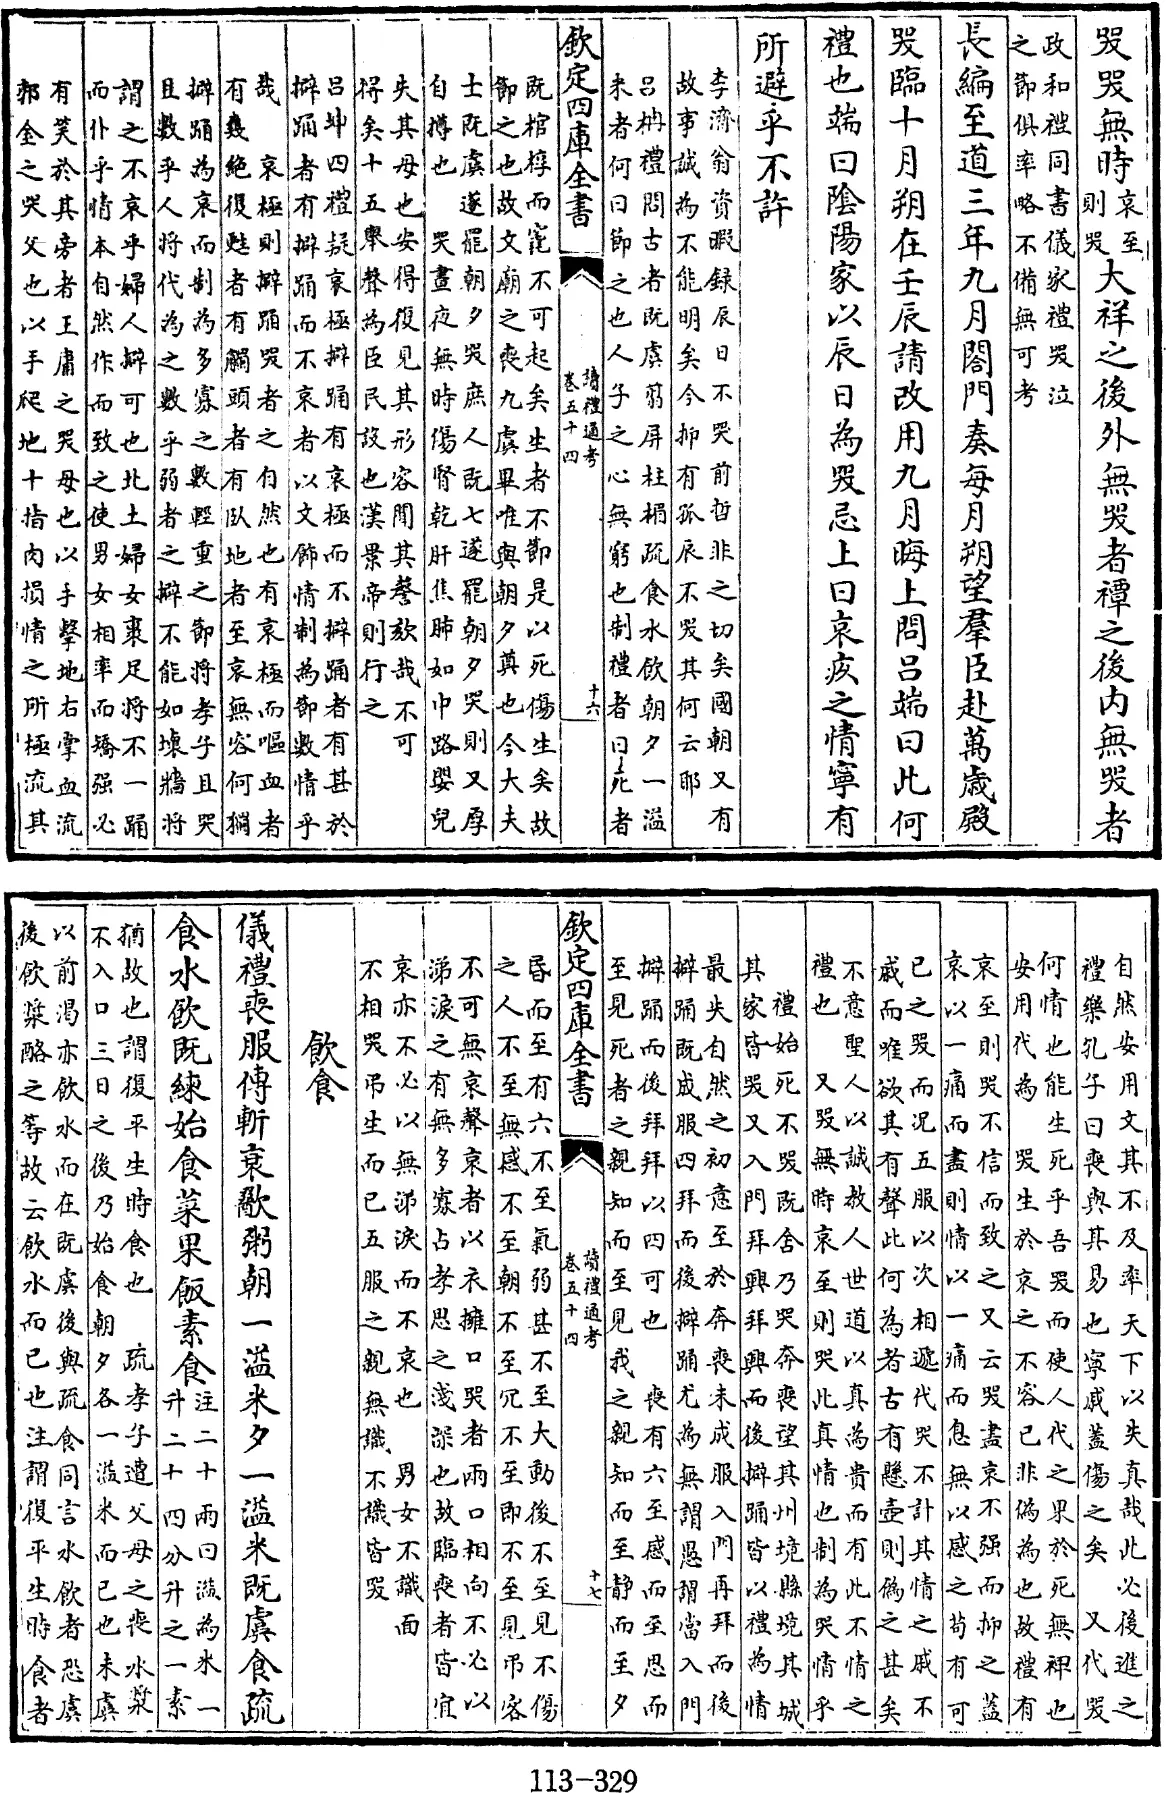 哭哭無時哀至
則哭大祥之後外無哭者禫之後内無哭者
政和禮同書儀家禮哭泣
之節俱率略不備無可考
長編至道三年九月閤門奏每月朔望羣臣赴萬歲殿
哭臨十月朔在壬辰請改用九月晦上問吕端曰此何
禮也端曰陰陽家以辰日為哭忌上曰哀疚之情寧有
所避乎不許
李濟翁資暇録辰日不哭前哲非之切矣國朝又有
故事誠為不能明矣今抑有孤辰不哭其何云耶
吕柟禮問古者既虞翦屏柱楣疏食水飲朝夕一溢
未者何曰節之也人子之心無窮也制禮者曰死者
欽定四庫全書
讀禮通考
卷五十四
十六
既棺椁而窆不可起矣生者不節是以死傷生矣故
節之也故文廟之喪九虞畢唯與朝夕奠也今大夫
士既虞遂罷朝夕哭庶人既七遂罷朝夕哭則又厚
自撙也 哭晝夜無時傷腎乾肝焦肺如中路嬰兒
失其母也安得復見其形容聞其謦欬哉不可
得矣十五舉聲為臣民設也漢景帝則行之
吕坤四禮疑哀極擗踊有哀極而不擗踊者有甚於
擗踊者有擗踊而不哀者以文飾情制為節數情乎
哉 哀極則擗踊哭者之自然也有哀極而嘔血者
有幾絶復甦者有觸頭者有臥地者至哀無容何獨
擗踊為哀而制為多寡之數輕重之節將孝子且哭
且數乎人將代為之數乎弱者之擗不能如壞牆將
謂之不哀乎婦人擗可也北土婦女裹足將不一踊
而仆乎情本自然作而致之使男女相率而矯强必
有笑於其旁者王庸之哭母也以手擊地右掌血流
郭全之哭父也以手爬地十指肉損情之所極流其
自然安用文其不及率天下以失真哉此必後進之
禮樂孔子曰喪與其易也寧戚蓋傷之矣 又代哭
何情也能生死乎吾哭而使人代之果於死無裨也
安用代為 哭生於哀之不容已非偽為也故禮有
哀至則哭不信而致之又云哭盡哀不强而抑之蓋
哀以一痛而盡則情以一痛而息無以感之苟有可
已之哭而況五服以次相遞代哭不計其情之戚不
戚而唯欲其有聲此何為者古有懸壺則偽之甚矣
不意聖人以誠教人世道以真為貴而有此不情之
禮也 又哭無時哀至則哭此真情也制為哭情乎
禮始死不哭既含乃哭奔喪望其州境縣境其城
其家皆哭又入門拜興拜興而後擗踊皆以禮為情
最失自然之初意至於奔喪未成服入門再拜而後
擗踊既成服四拜而後擗踊尤為無謂愚謂當入門
擗踊而後拜拜以四可也 喪有六至感而至思而
至見死者之親知而至見我之親知而至静而至夕
欽定四庫全書
讀禮通考
卷五十四
十七
昏而至有六不至氣弱甚不至大動後不至見不傷
之人不至無感不至朝不至冗不至即不至見弔客
不可無哀聲哀者以衣擁口哭者兩口相向不必以
涕淚之有無多寡占孝思之淺深也故臨喪者皆宜
哀亦不必以無涕淚而不哀也 男女不識面
不相哭弔生而已五服之親無識不識皆哭
飲食
儀禮喪服傳斬衰歠粥朝一溢米夕一溢米既虞食疏
食水飲既練始食菜果飯素食注二十兩曰溢為米一
升二十四分升之一素
猶故也謂復平生時食也 疏孝子遭父母之喪水漿
不入口三日之後乃始食朝夕各一溢米而已也未虞
以前渴亦飲水而在既虞後與疏食同言水飲者恐虞
後飲漿酪之等故云飲水而已也注謂復平生時食者
113-329